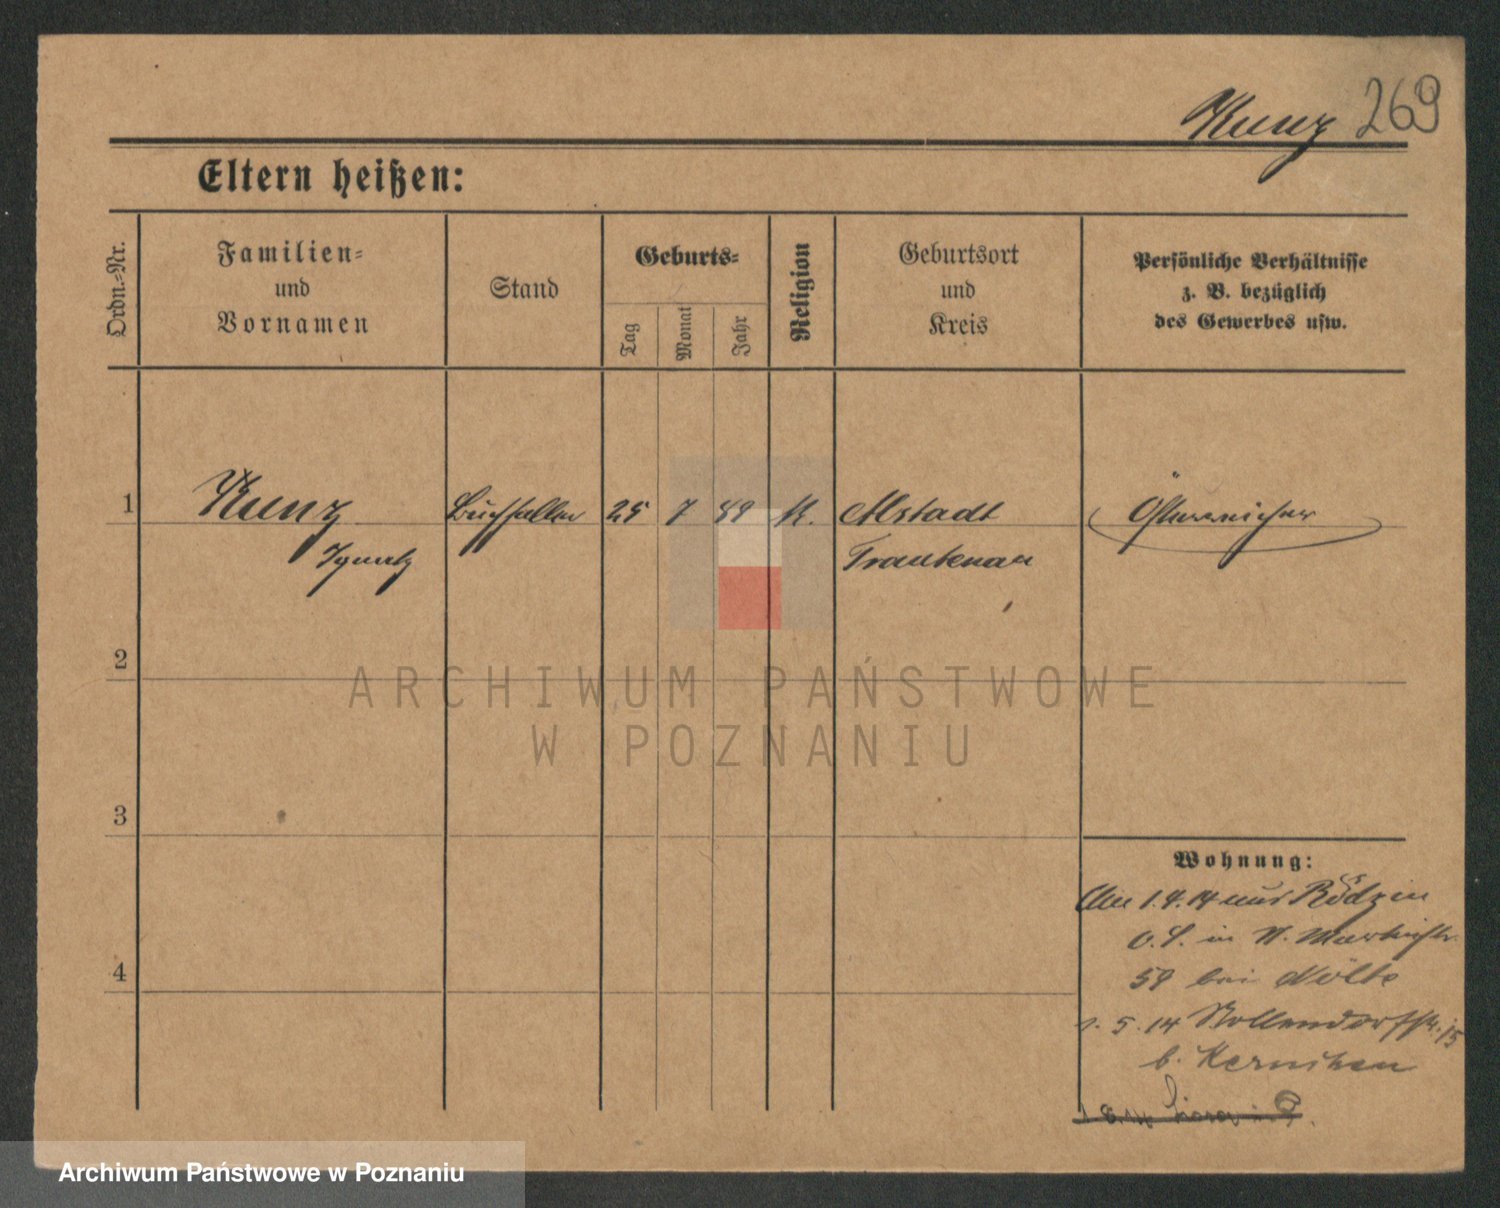 Kunz 269
Eltern heißen:
Ordn.-Nr.
Familien-
und
Vornamen
Stand
Geburts-
Tag
Monat
Jahr
Religion
Geburtsort
und
Kreis
Persönliche Verhältnisse
z. B. bezüglich
des Gewerbes usw.
1
Kunz
Ignatz
Buchhalter
25 7 89 K.
Altstadt
Trautenau
Österreicher
2
ARCHIWUM PAŃSTWOWE
W POZNANIU
3
Wohnung:
Am 1.4.14 aus
O.S. in W. Martinstr.
59 bei Nölte
1.5.14 Nollendorfstr. 15
b.
4
Archiwum Państwowe w Poznaniu